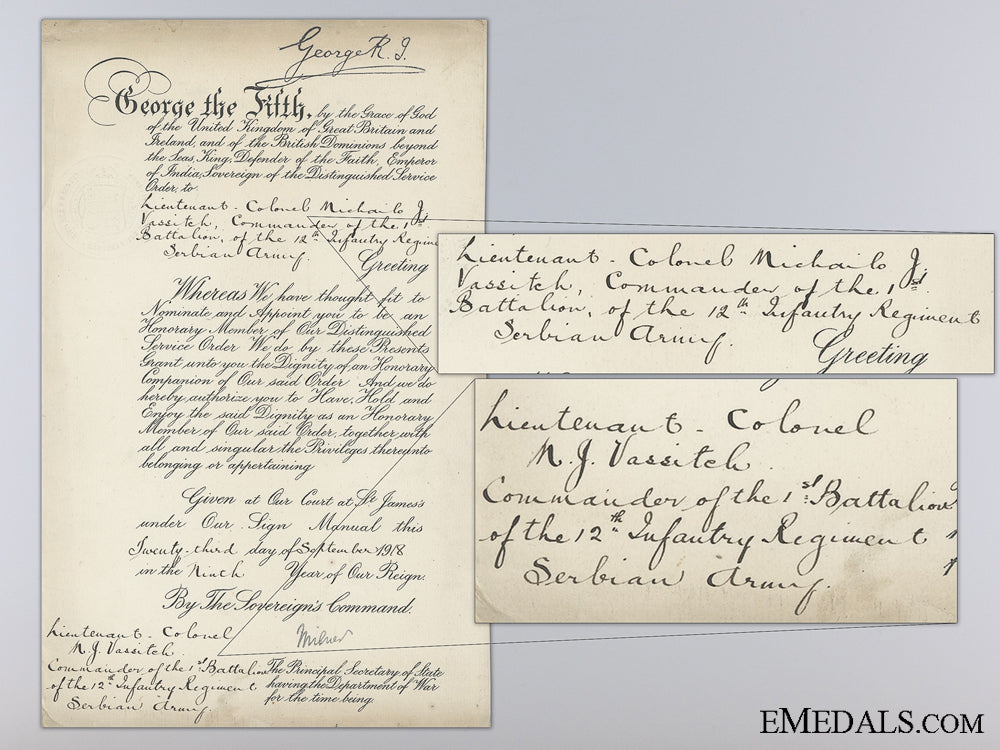 George R. I.
George the Fifth, by the Grace of God
of the United Kingdom of Great Britain and
Ireland, and of the British Dominions beyond
the Seas, King, Defender of the Faith, Emperor
of India, Sovereign of the Distinguished Service
Order, to
Lieutenant - Colonel Michailo J.
Vassitch, Commander of the 1st
Battalion, of the 12th Infantry Regim
Serbian Army.
Greeting
Whereas We have thought fit to
Nominate and Appoint you to be an
Honorary Member of Our Distinguished
Service Order We do by these Presents
Grant unto you the Dignity of an Honorary
Companion of Our said Order And we do
hereby authorize you to Have, Hold and
Enjoy the said Dignity as an Honorary
Member of Our said Order, together with
all and singular the Privileges thereunto
belonging or appertaining
Given at Our Court at St James's
under Our Sign Manual this
Twenty-third day of September 1918
in the Ninth Year of Our Reign.
By The Sovereign's Command.
Milner
Lieutenant - Colonel
M. J. Vassitch
Commander of the 1st Battalion
of the 12th Infantry Regiment
Serbian Army.
The Principal Secretary of State
having the Department of War
for the time being.
Lieutenant - Colonel Michailo J.
Vassitch, Commander of the 1st
Battalion, of the 12th Infantry Regiment
Serbian Army.
Greeting
Lieutenant - Colonel
M. J. Vassitch
Commander of the 1st Battalion
of the 12th Infantry Regiment
Serbian Army.
EMEDALS.COM